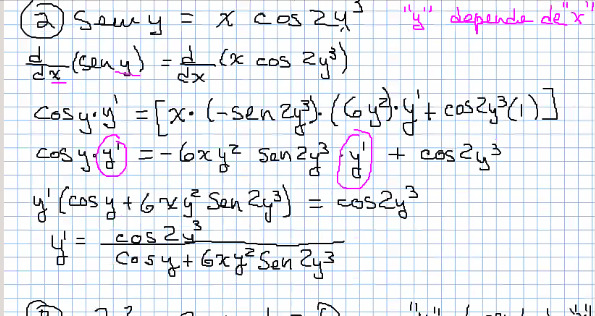 2) Sen y = x cos 2y³ "y" depende de "x"
d/dx (sen y) = d/dx (x cos 2y³)
cos y · y' = [x · (-sen 2y³) · (6y²) · y' + cos 2y³ (1)]
cos y · y' = -6xy² sen 2y³ · y' + cos 2y³
y' (cos y + 6xy² Sen 2y³) = cos 2y³
y' = cos 2y³ / Cos y + 6xy² Sen 2y³